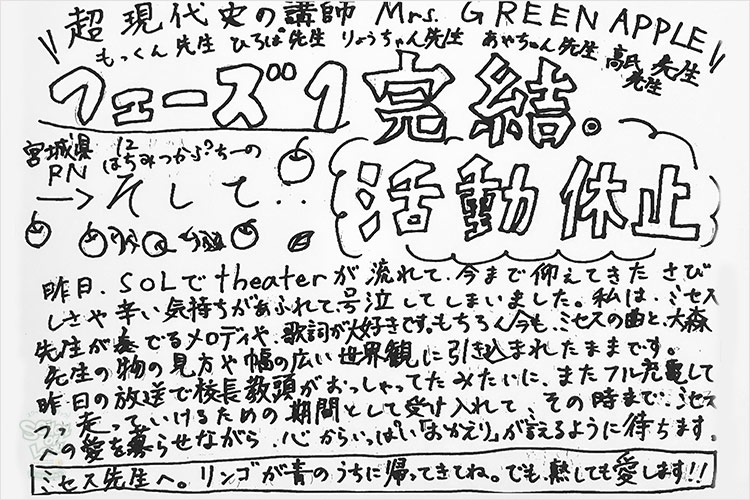 超現代史の講師 Mrs. GREEN APPLE
もっくん先生 ひろぱ先生 りょうちゃん先生 あやちゃん先生 高氏先生 先生
フェーズ1完結。
宮城県 12
RN はちみつから?ちーの
→そして..
活動休止
昨日、SOLでtheaterが流れて、今まで抑えてきたさび
しさや辛い気持ちがあふれて、号泣してしまいました。私は、ミセス
先生が奏でるメロディや、歌詞が大好きです。もちろん今も、ミセスの曲と、大森
先生の物の見方や幅の広い世界観に引き込まれたままです。
昨日の放送で校長教頭がおっしゃってたみたいに、またフル充電して
つっ走っていけるための期間として受け入れて、その時まで、ミセス
への愛を募らせながら、心からいっぱい「おかえり」が言えるように待ちます。
ミセス先生へ。リンゴが青のうちに帰ってきてね。でも、熟しても愛します!!